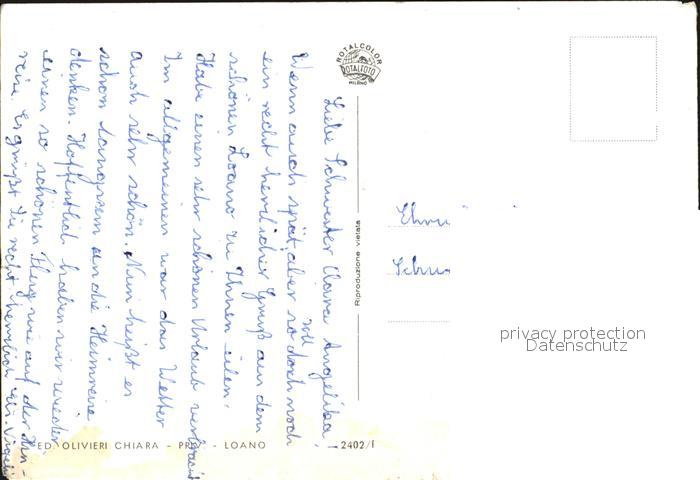 Liebe Schwester Clara Angelika,
Wenn auch spät aber so doch noch
soll
ein recht herzlicher Gruß aus dem
schönen Loano zu Ihnen eilen.
Habe einen sehr schönen Urlaub verbracht
Im allgemeinen war das Wetter
auch sehr schön. Nun heißt es
schon langsam an die Heimreise
denken. Hoffentlich haben wir wieder
einen so schönen Flug wie auf der Hin-
reise. Es grüßt Sie recht herzlich
ROTALCOLOR
ROTALFOTO
MILANO
Riproduzione vietata
Ehrw
Schw
privacy protection
Datenschutz
ED. OLIVIERI CHIARA - LOANO
2402/I